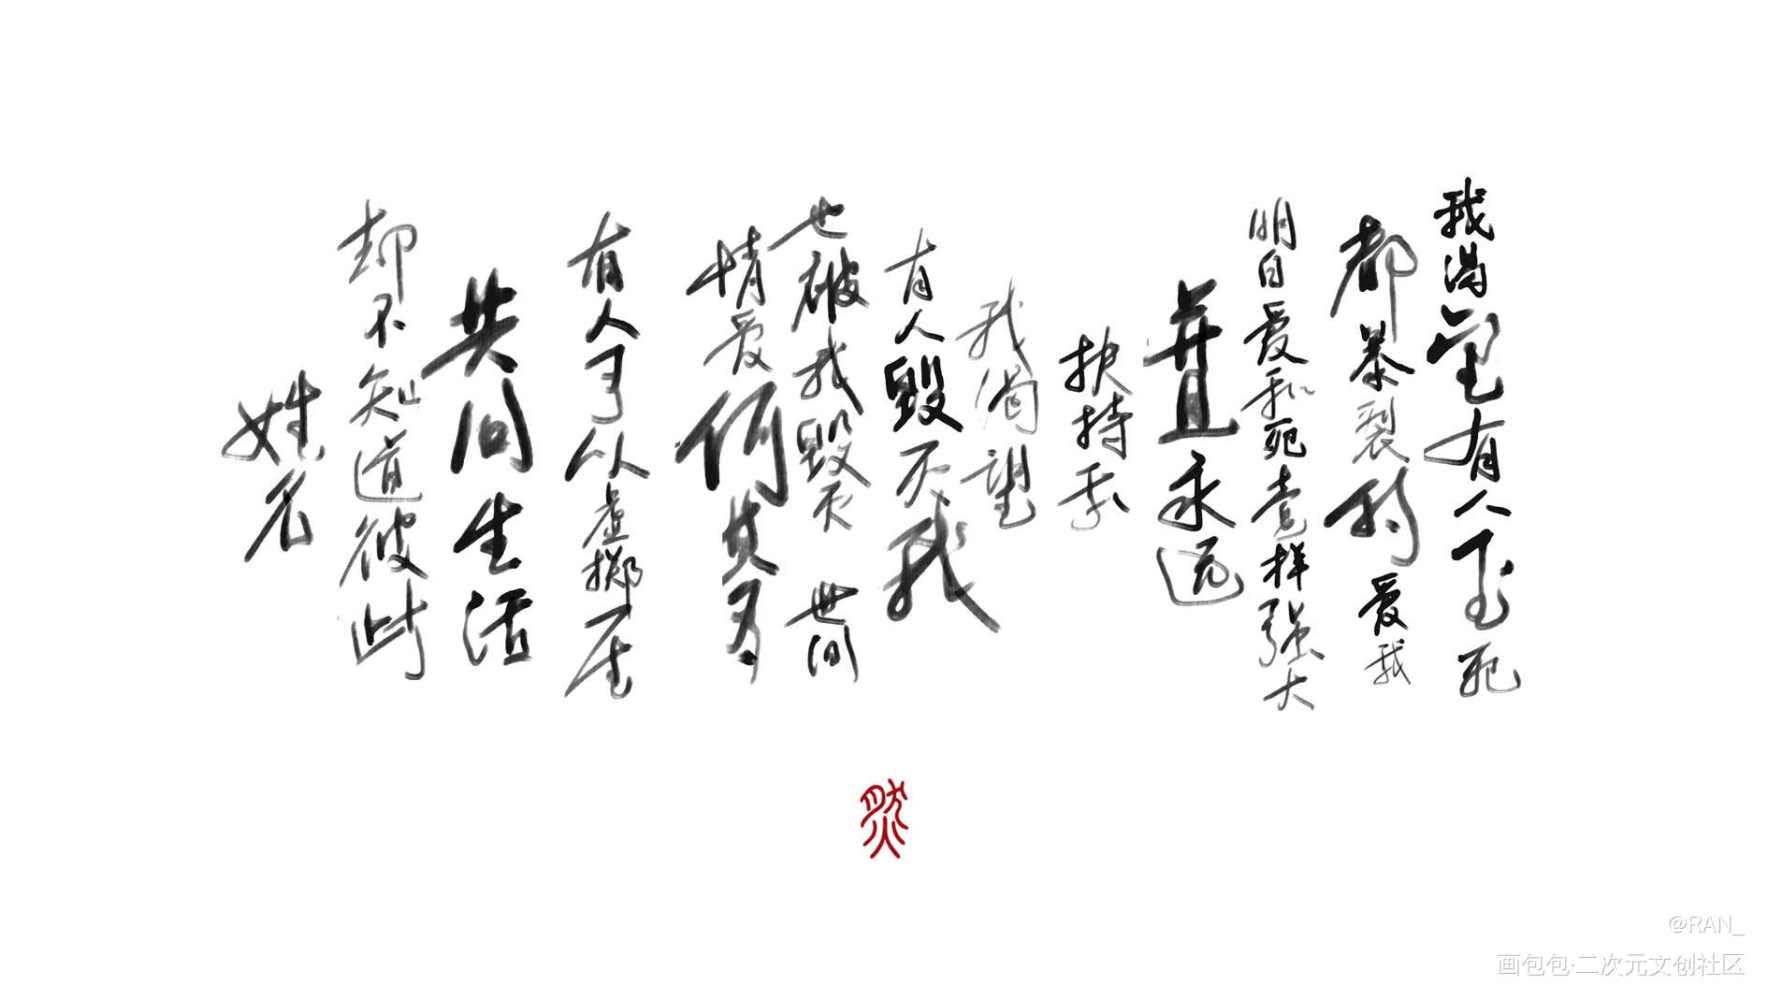 我渴望有人至死
都暴裂的爱我
明白爱和死壹样强大
并且永远
扶持我
我渴望
有人毁灭我
也被我毁灭 世间
情爱何其多
有人可以虚掷一生
共同生活
却不知道彼此
姓名
燃
@RAN_
画包包·二次元文创社区